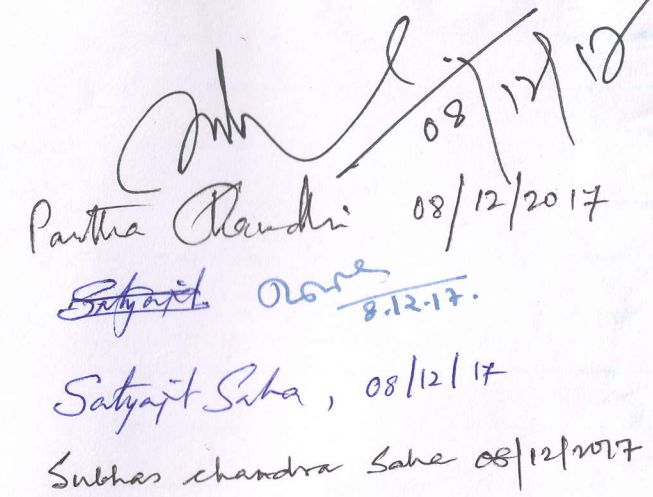 08/12/17
Partha Chaudhuri 08/12/2017
Satyajit 8.12.17.
Satyajit Saha, 08/12/17
Subhas chandra Saha 08/12/2017